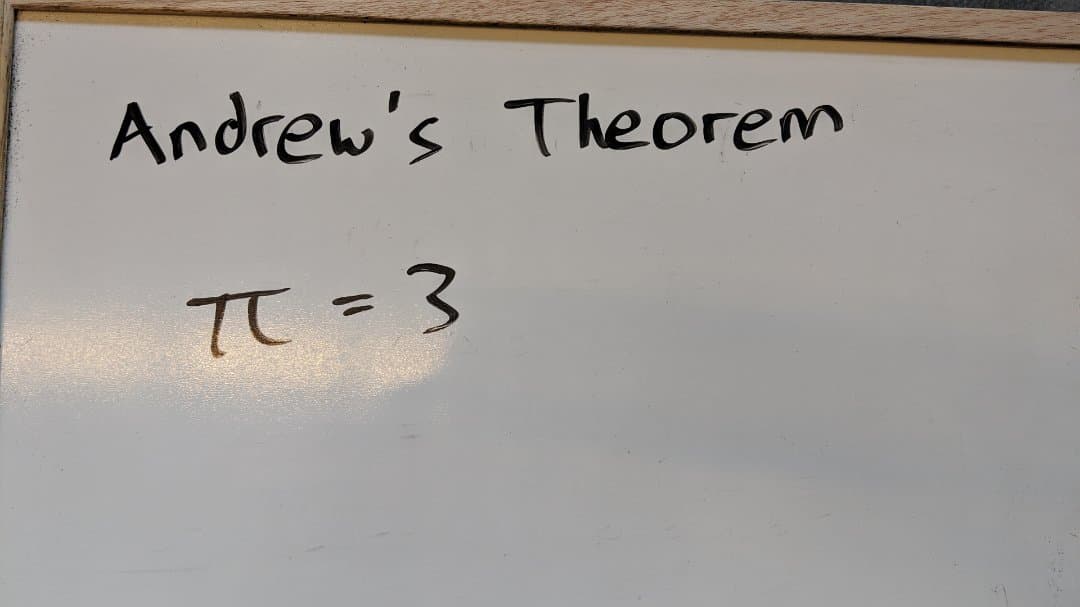 Andrew's Theorem
π = 3